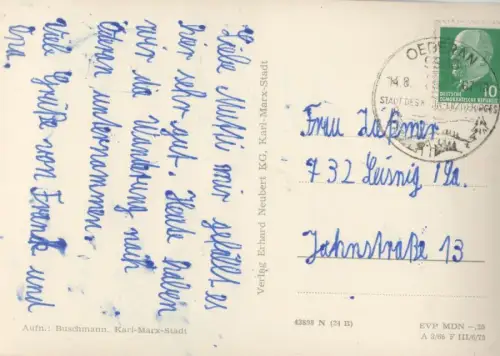 Liebe Mutti, mir gefällt es
hier sehr gut. Heute haben
wir die Wanderung nach
unternommen.
Viele Grüße von Frank und
Ina.
Aufn.: Buschmann, Karl-Marx-Stadt
Verlag Erhard Neubert KG, Karl-Marx-Stadt
OEDERAN
14.8.
STADT DES
DEUTSCHE
DEMOKRATISCHE REPUBLIK
10
Frau Laßmer
732 Leisnig
Jahnstraße 13
42855 N (24 B)
EVP MDN -.25
A 2/66 F III/6/73